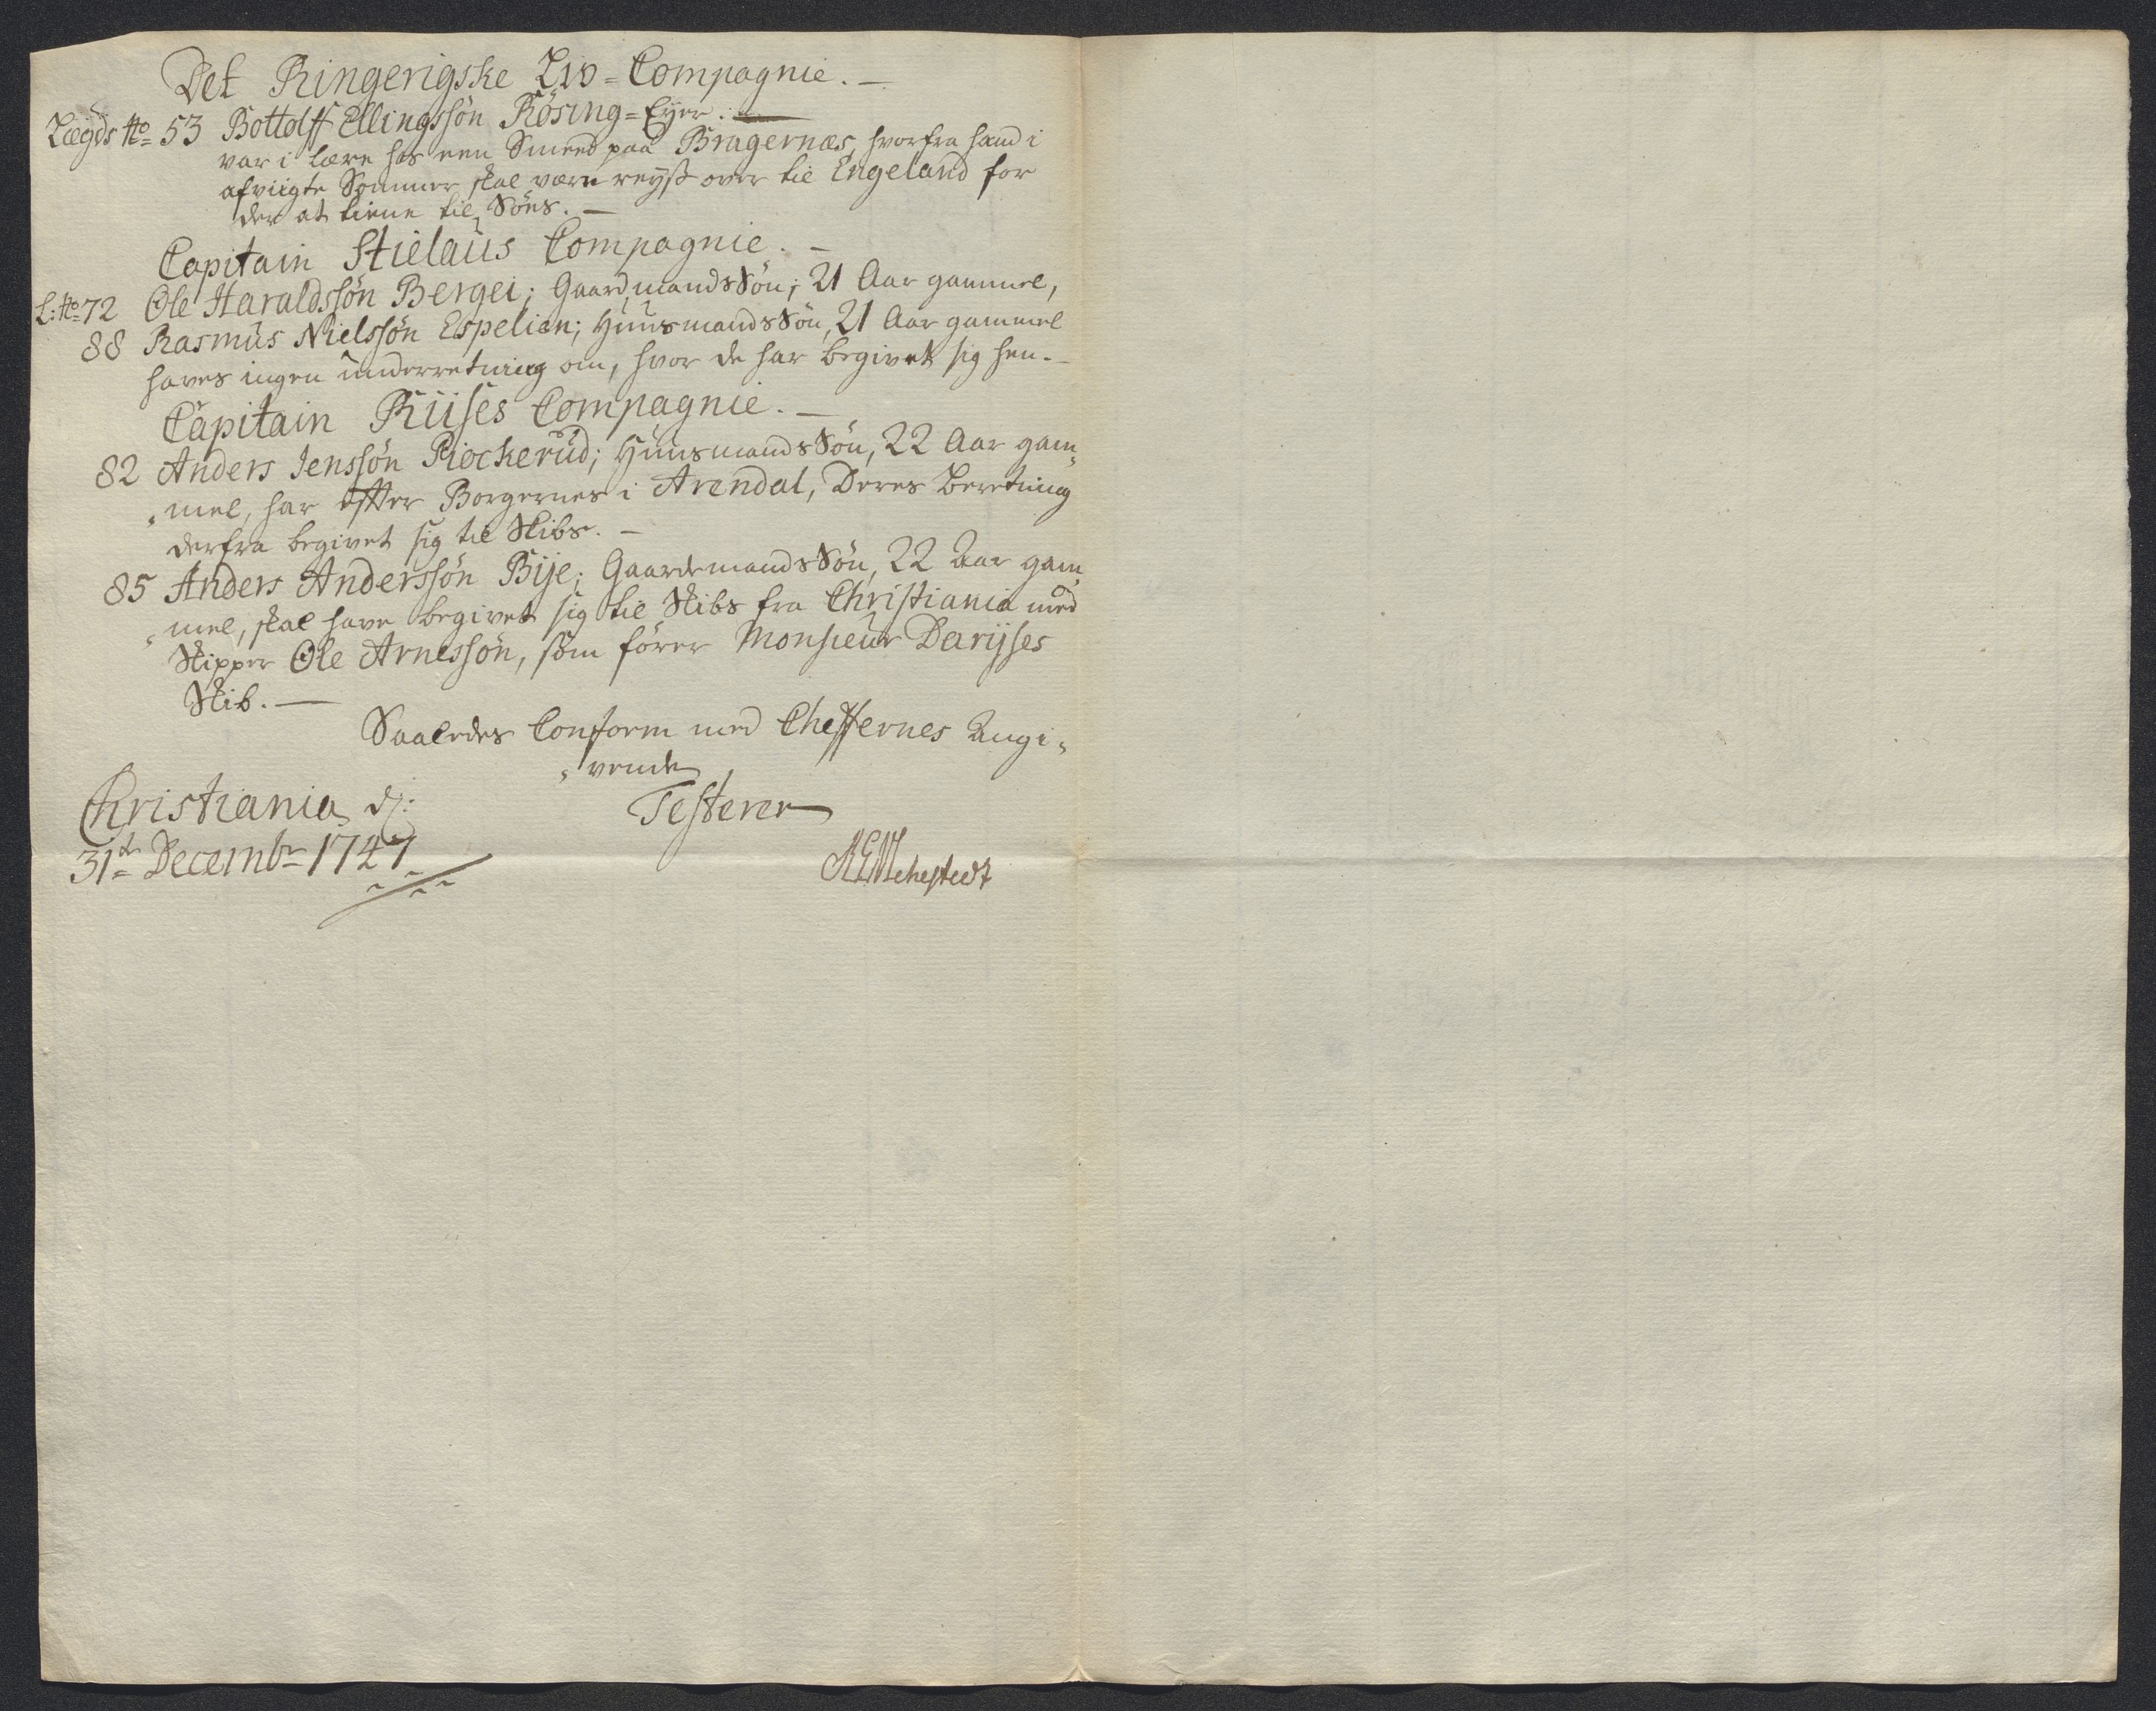 Det Ringerigske Liv=Compagnie.—
Lægds No 53 Bottolff Ellingssøn Røsing=Eyer.
var i lære hos een Smed paa Bragernæs, hvorfra hand i
afviigte Sommer skal være reyst over til Engeland for
der at tiene til Søes.—
Capitain Stielaus Compagnie.—
L: No 72 Ole Haraldssøn Bergei; Gaardmands Søn; 21 Aar gammel,
88 Rasmus Nielssøn Espelien; Huusmands Søn, 21 Aar gammel
haves ingen underretning om, hvor de har begivet sig hen.—
Capitain Riises Compagnie.—
82 Anders Jenssøn Piockerud; Huusmands Søn, 22 Aar gam„
„mel, har efter Borgernes i Arendal, Deres Beretning
derfra begivet sig til Skibs.—
85 Anders Anderssøn Bije; Gaardemands Søn, 22 Aar gam„
„mel, skal have begivet sig til Skibs fra Christiania med
Skipper Ole Arnessøn, som fører Monsieur Darijses
Skib.—
Saaledes Conform med Cheffernes Angi„
„vende
Testerer
Christiania d:
31te Decembr 1747